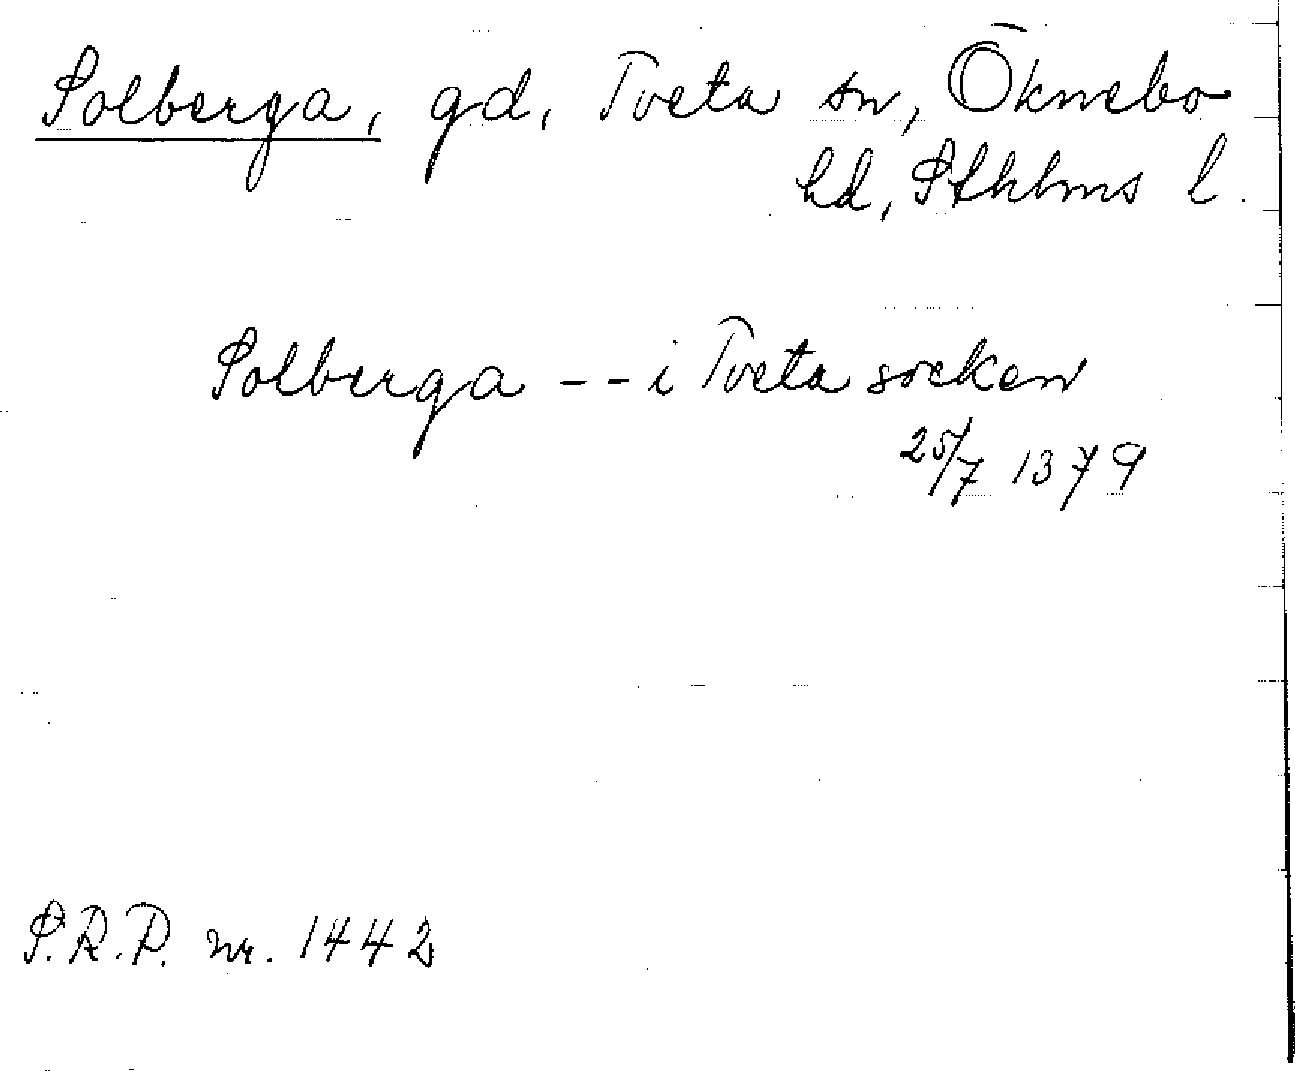 Solberga, gd, Tveta sn, Öknebo
hd, Sthlms l.
Solberga -- i Tveta socken
25/7 1379
S.R.P. nr. 1442